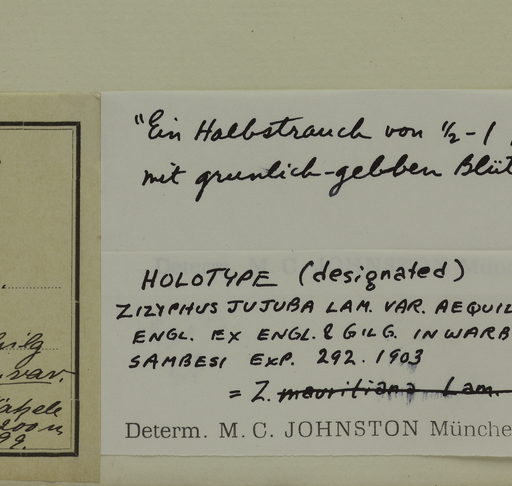 "Ein Halbstrauch von ½-1
mit grunlich-gebben Blüt
HOLOTYPE (designated)
ZIZYPHUS JUJUBA LAM. VAR. AEQUIL
ENGL. EX ENGL. & GILG. IN WARB
SAMBESI EXP. 292. 1903
= Z. mauritiana Lam.
Determ. M. C. JOHNSTON Münche
var.
200m
99.